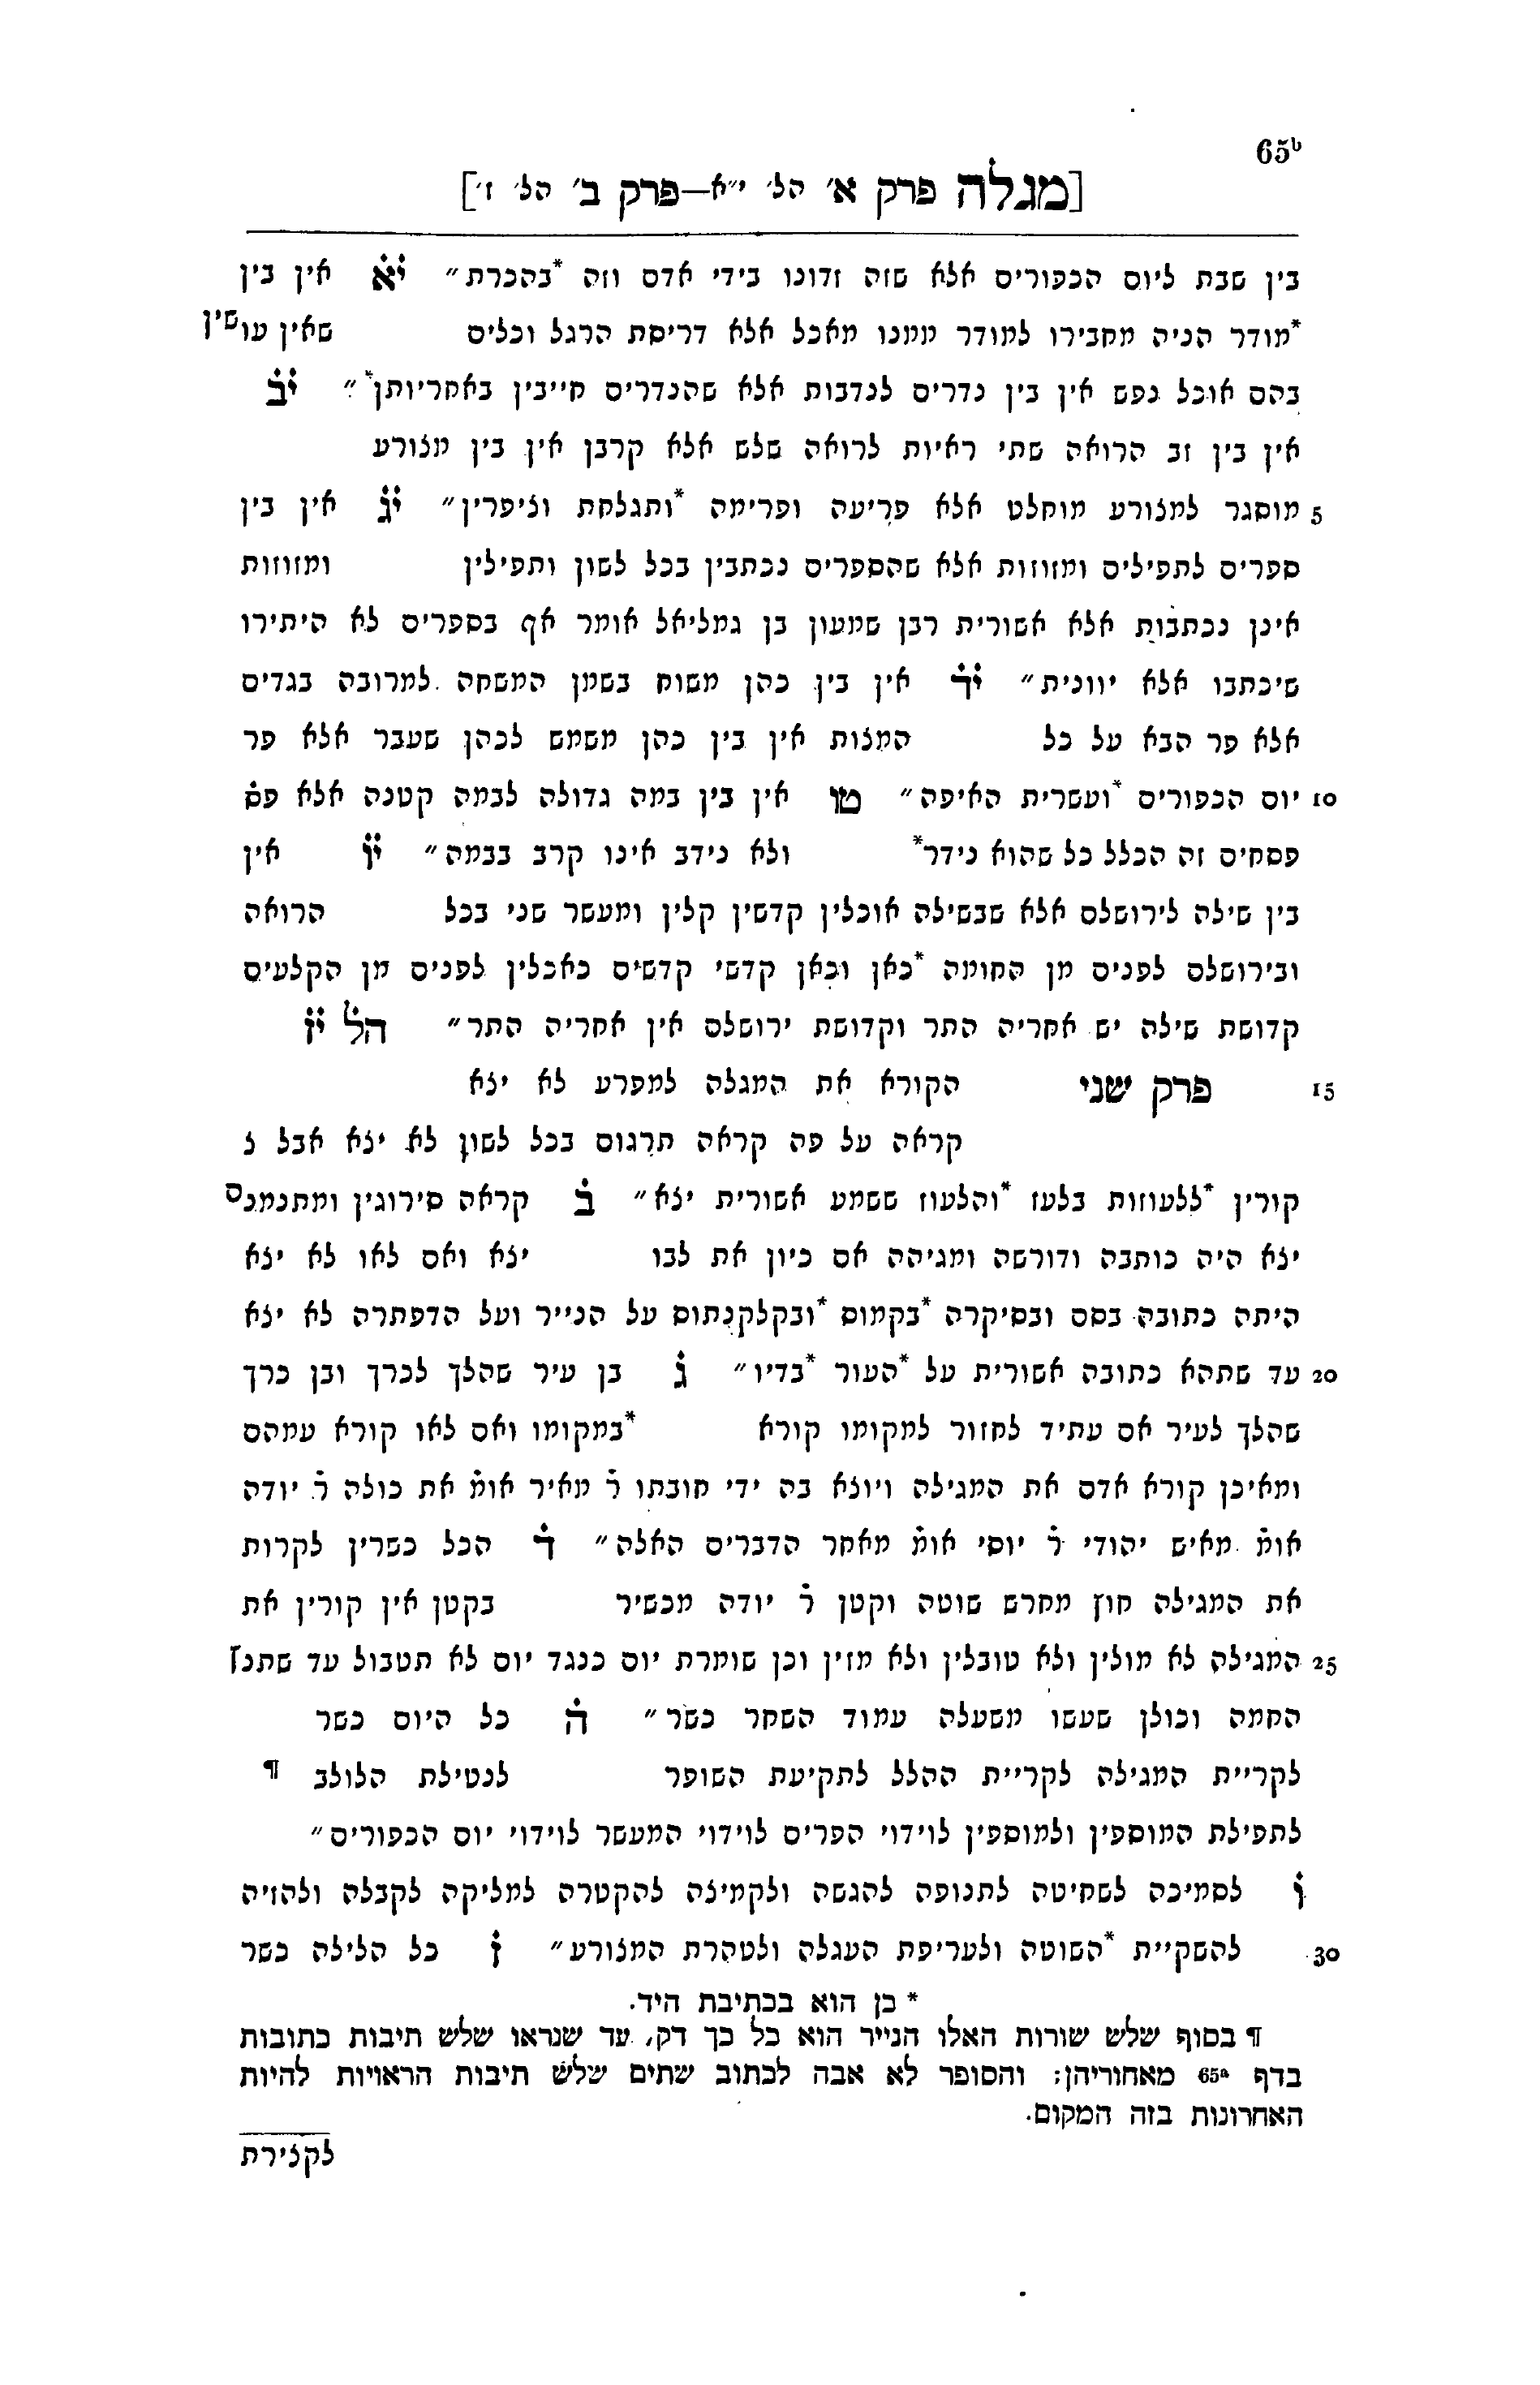 65b
[מגלה פרק א׳ הל׳ י״א—פרק ב׳ הל׳ ז׳]
בין שבת ליום הכפורים אלא שזה זדונו בידי אדם וזה *בהכרת״ יא אין בין
*מודר הניה מחבירו למודר ממנו מאכל אלא דריסת הרגל וכלים שאין עושין
בהם אוכל נפש אין בין נדרים לנדבות אלא שהנדרים חייבין באחריותן*״ יב
אין בין זב הרואה שתי ראיות לרואה שלש אלא קרבן אין בין מצורע
5 מוסגר למצורע מוחלט אלא פריעה ופרימה *ותגלחת וציפרין״ יג אין בין
ספרים לתפילים ומזוזות אלא שהספרים נכתבין בכל לשון ותפילין ומזוזות
אינן נכתבות אלא אשורית רבן שמעון בן גמליאל אומר אף בספרים לא היתירו
שיכתבו אלא יוונית״ יד אין בין כהן משוח בשמן המשחה למרובה בגדים
אלא פר הבא על כל המצות אין בין כהן משמש לכהן שעבר אלא פר
10 יום הכפורים *ועשרית האיפה״ טו אין בין במה גדולה לבמה קטנה אלא פס׳
פסחים זה הכלל כל שהוא נידר* ולא נידב אינו קרב בבמה״ יו אין
בין שילה לירושלם אלא שבשילה אוכלין קדשין קלין ומעשר שני בכל הרואה
ובירושלם לפנים מן החומה *כאן וכאן קדשי קדשים נאכלין לפנים מן הקלעים
קדושת שילה יש אחריה התר וקדושת ירושלם אין אחריה התר״ הל׳ יז
15 פרק שני הקורא את המגלה למפרע לא יצא
קראה על פה קראה תרגום בכל לשון לא יצא אבל צ
קורין *ללעוזות בלעז *והלעוז ששמע אשורית יצא״ ב קראה סירוגין ומתנמנם
יצא היה כותבה ודורשה ומגיהה אם כיון את לבו יצא ואם לאו לא יצא
היתה כתובה בסם ובסיקרה *בקמוס *ובקלקנתוס על הנייר ועל הדפתרה לא יצא
20 עד שתהא כתובה אשורית על *העור *בדיו״ ג בן עיר שהלך לכרך ובן כרך
שהלך לעיר אם עתיד לחזור למקומו קורא *במקומו ואם לאו קורא עמהם
ומאיכן קורא אדם את המגילה ויוצא בה ידי חובתו ר׳ מאיר אומ׳ את כולה ר׳ יודה
אומ׳ מאיש יהודי ר׳ יוסי אומ׳ מאחר הדברים האלה״ ד הכל כשרין לקרות
את המגילה חוץ מחרש שוטה וקטן ר׳ יודה מכשיר בקטן אין קורין את
25 המגילה לא מולין ולא טובלין ולא מזין וכן שומרת יום כנגד יום לא תטבול עד שתנץ
החמה וכולן שעשו משעלה עמוד השחר כשר״ ה כל היום כשר
לקריית המגילה לקריית ההלל לתקיעת השופר לנטילת הלולב ¶
לתפילת המוספין ולמוספין לוידוי הפרים לוידוי המעשר לוידוי יום הכפורים״
ו לסמיכה לשחיטה לתנופה להגשה ולקמיצה להקטרה למליקה לקבלה ולהזיה
30 להשקיית *השוטה ולעריפת העגלה ולטהרת המצורע״ ז כל הלילה כשר
* כן הוא בכתיבת היד.
¶ בסוף שלש שורות האלו הנייר הוא כל כך דק, עד שנראו שלש תיבות כתובות
בדף 65a מאחוריהן; והסופר לא אבה לכתוב שתים שלש תיבות הראויות להיות
האחרונות בזה המקום.
לקצירת